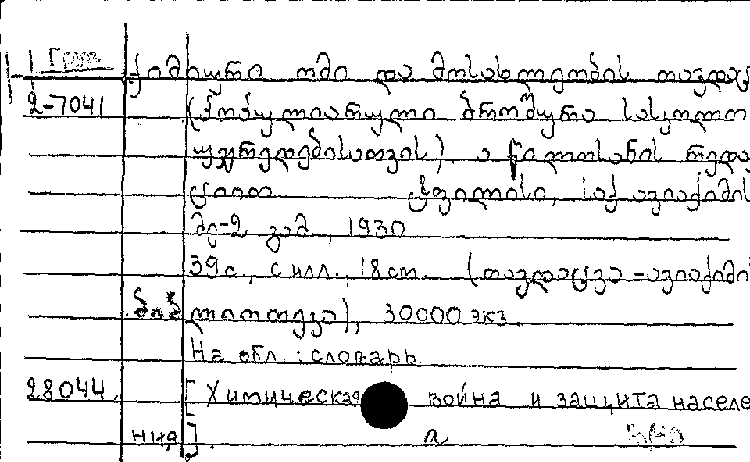 Груз ქიმიური ომი და მოსახლეობის თავდაც
2-7041 (პოპულიარული ბროშურა სასკოლო
უჯრედებისათვის). ა წილოსანის რედა
ქციით ტფილისი, საქ ავიაქიმის
მე-2 გამ, 1930
39с., с илл., 18см. (თავდაცვა-ავიაქიმის
ლიოთეკა), 30000 экз.
На обл.: словарь
28044. [Химическая война и защита населе
ния].